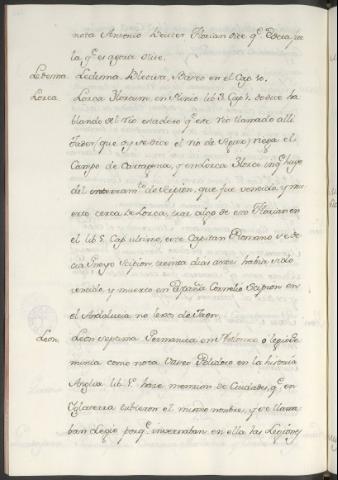 nota Antonio Florian dice q.e
la q.e es agora
Ledesma Ledesma Bletisa, Vaseo en el Cap. 20.
Lorca Lorca Ilorcum, en Plinio lib. 3. Cap. 1. donde ha
blando del rio estadero q.e este rio llamado alli
Tader (que oy se dice el rio de Segura) riega el
Campo de Cartagena, y en Lorca Ilorci huye
del de Scipion, que fue vencido, y mu
erto cerca de Lorca, trae algo de esto Florian en
el lib. 5. Cap. ultimo, este Capitan Romano se de
cia Gneyo Scipion, treinta dias antes habia sido
vencido, y muerto en España Cornelio Scipion en
el Andalucia no lexos de Jaen.
Leon Leon septima Germanica en Ptolomeo o legio Ge
minia como nota Vaseo Polidoro en la historia
Anglia lib. 5. hace mencion de Ciudades q.e en
Inglaterra tubieron el mismo nombre, y se llama
ban Legio porq.e invernaban en ella las Legiones